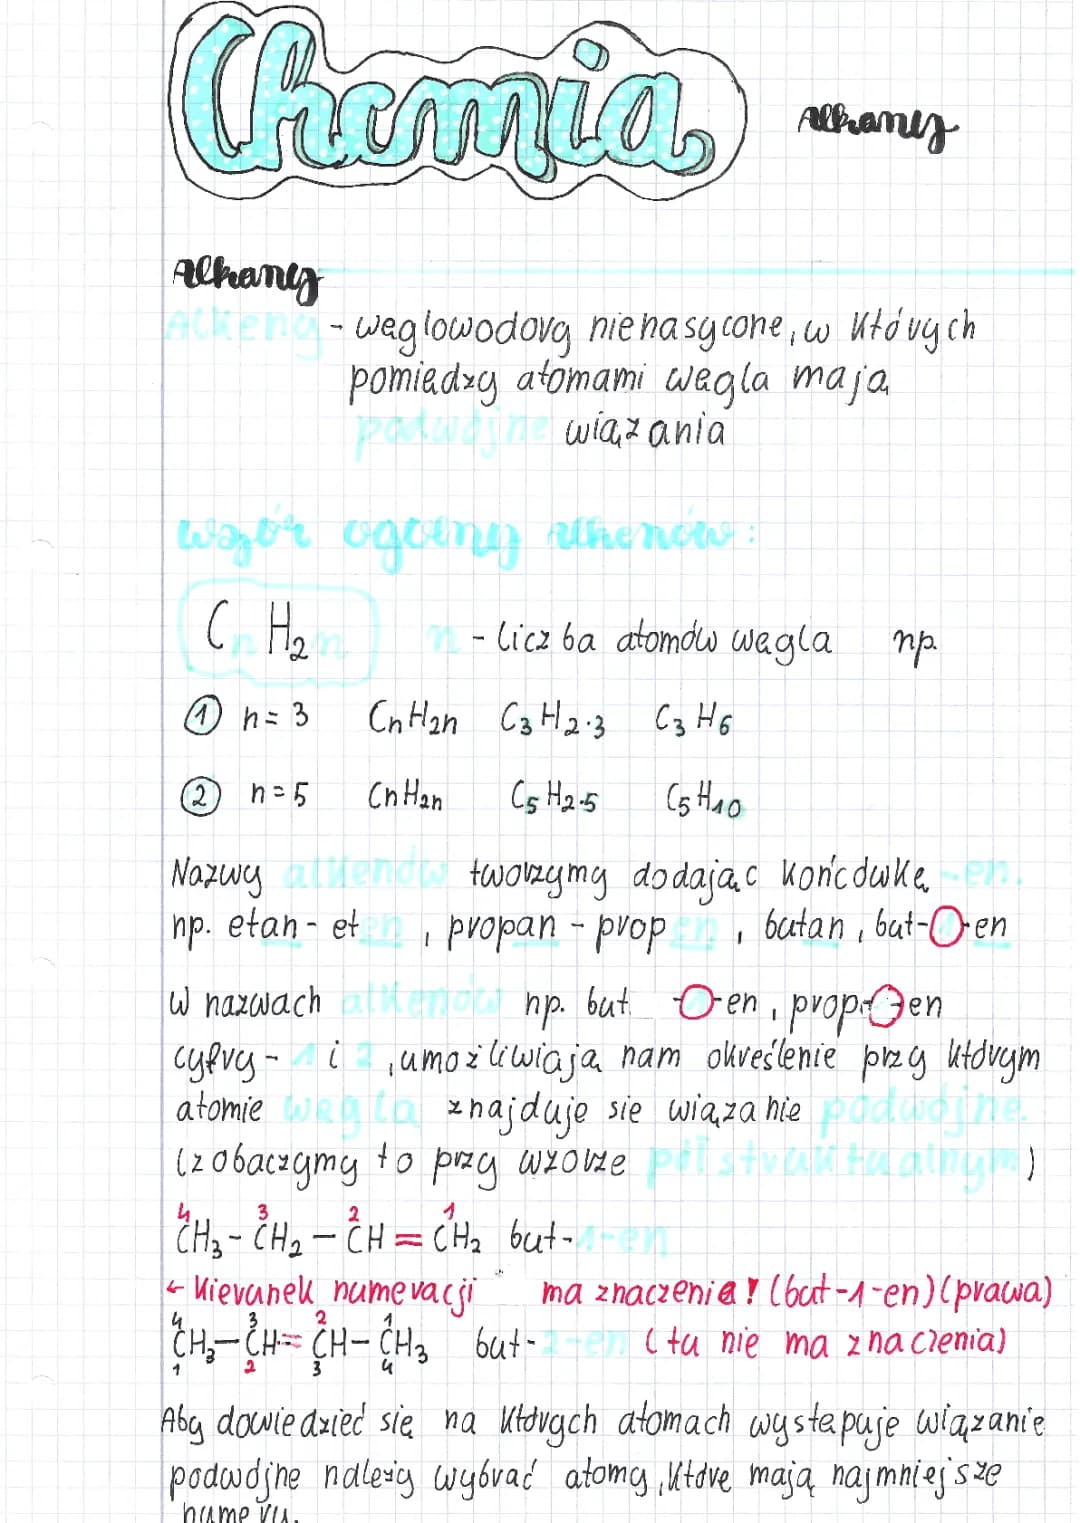 Chemia
Alkany
Alkany
Alkeny - węglowodory nienasycone, w których
pomiędzy atomami węgla mają
podwójne wiązania
wzór ogólny alkenów:
CnH2n n - liczba atomów węgla np.
① n = 3 CnH2n C3H2·3 C3H6
② n = 5 CnH2n C5H2·5 C5H10
Nazwy alkenów tworzymy dodając końcówkę -en.
np. etan - eten, propan - propen, butan, but- -en
W nazwach alkenów np. but- -en, prop- -en
cyfry - 1 i 2, umożliwiają nam określenie przy którym
atomie węgla znajduje sie wiązanie podwójne.
(zobaczymy to przy wzorze półstrukturalnym)
4 3 2 1
CH3 - CH2 - CH = CH2 but-1-en
← kierunek numeracji ma znaczenie! (but-1-en) (prawa)
4 3 2 1
CH3 - CH = CH - CH3 but-2-en (tu nie ma znaczenia)
1 2 3 4
Aby dowiedzieć się na których atomach wystepuje wiązanie
podwójne należy wybrać atomy, które mają najmniejsze
numery.